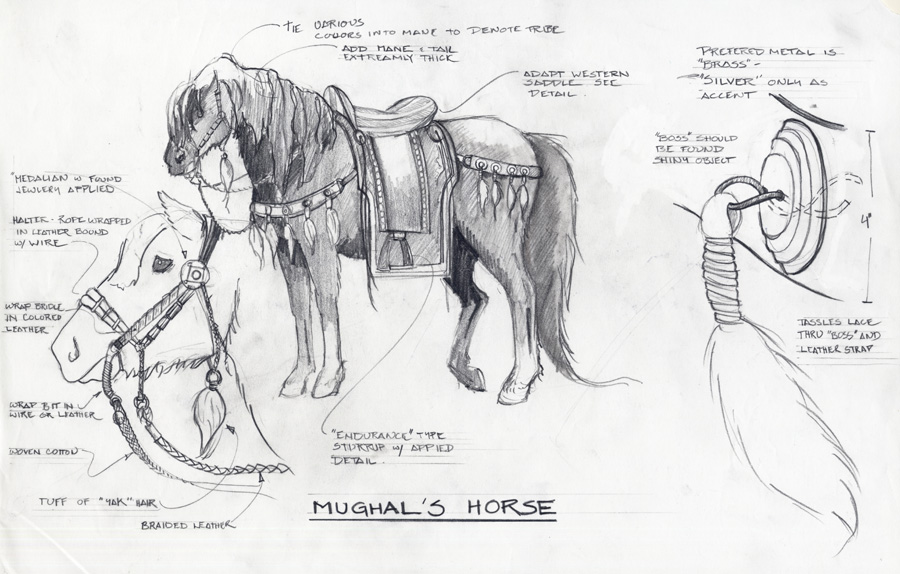 TIE VARIOUS
COLORS INTO MANE TO DENOTE TRIBE
ADD MANE & TAIL
EXTREAMLY THICK
ADAPT WESTERN
SADDLE SEE
DETAIL.
PREFERED METAL IS
"BRASS" -
"SILVER" ONLY AS
ACCENT
"BOSS" SHOULD
BE FOUND
SHINY OBJECT
4"
TASSLES LACE
THRU "BOSS" AND
LEATHER STRAP
"MEDALIAN W FOUND
JEWLERY APPLIED
HALTER - ROPE WRAPPED
IN LEATHER BOUND
W/ WIRE
WRAP BRIDLE
IN COLORED
LEATHER
WRAP BIT IN
WIRE OR LEATHER
WOVEN COTTON
TUFF OF "YAK" HAIR
BRAIDED LEATHER
"ENDURANCE" TYPE
STURRUP W/ APPIED
DETAIL.
MUGHAL'S HORSE